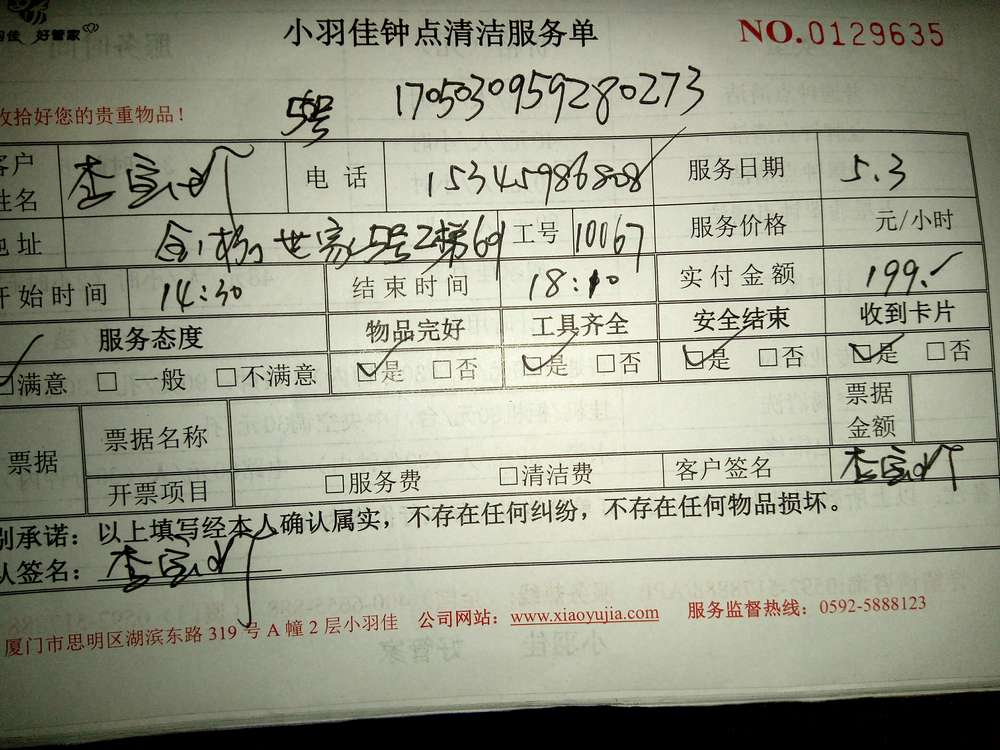 好管家
小羽佳钟点清洁服务单
NO.0129635
收拾好您的贵重物品！
5号 170503095928 0273
客户姓名 电话 15345986808 服务日期 5.3
地址 世家5号2梯601 工号 10067 服务价格 元/小时
开始时间 14:30 结束时间 18:10 实付金额 199.
服务态度 物品完好 工具齐全 安全结束 收到卡片
满意 □一般 □不满意 是 □否 是 □否 是 □否 是 □否
票据 票据名称 票据金额
开票项目 □服务费 □清洁费 客户签名
别承诺：以上填写经本人确认属实，不存在任何纠纷，不存在任何物品损坏。
人签名：
厦门市思明区湖滨东路 319 号 A 幢 2 层小羽佳 公司网站：www.xiaoyujia.com 服务监督热线：0592-5888123